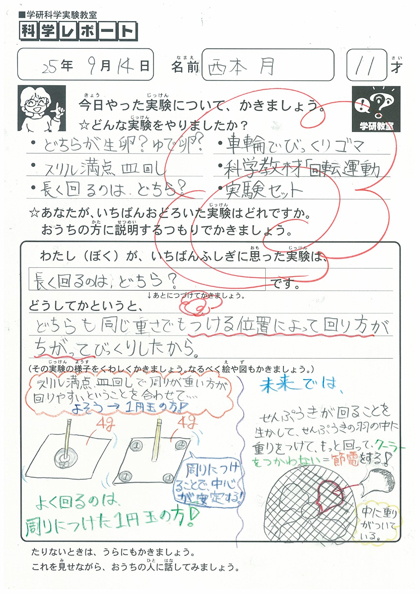 ■学研科学実験教室
科学レポート
25年 9月14日 名前 西本 月 11才
今日やった実験について、かきましょう。
☆どんな実験をやりましたか？
学研教室
・どちらが生卵？ゆで卵？ ・車輪でびっくりゴマ
・スリル満点 皿回し ・科学教材「回転運動
・長く回るのは、どちら？ ・実験セット
☆あなたが、いちばんおどろいた実験はどれですか。
おうちの方に説明するつもりでかきましょう。
わたし（ぼく）が、いちばんふしぎに思った実験は、
長く回るのは、どちら？ です。
↓あとにつづけてかきましょう。
どうしてかというと、
どちらも同じ重さでもつける位置によって回り方が
ちがってびっくりしたから。
(その実験の様子をくわしくかきましょう。なるべく絵や図もかきましょう。)
スリル満点 皿回しで周りが重い方が
回りやすいということを合わせて…
よそう→1円玉の方!
4g 4g
周りにつけ
ることで、中心
が安定する!
よく回るのは、
周りにつけた1円玉の方!
未来では、
せんぷうきが回ることを
生かして、せんぷうきの羽の中に
重りをつけて、もっと回って、クーラー
をつかわない=節電する!
中に重
りがついて
いる。
たりないときは、うらにもかきましょう。
これを見せながら、おうちの人に話してみましょう。